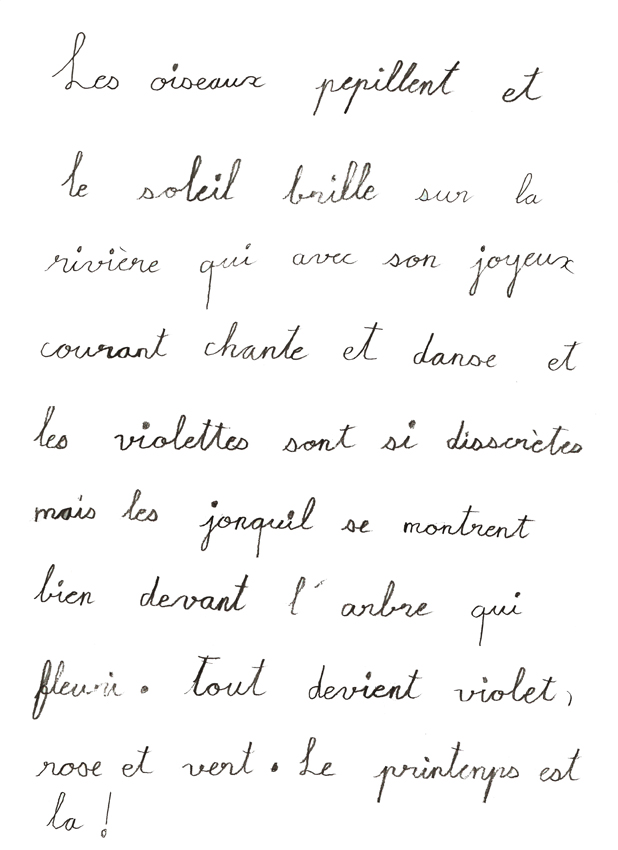 Les oiseaux pepillent et
le soleil brille sur la
rivière qui avec son joyeux
courant chante et danse et
les violettes sont si disscrètes
mais les jonquil se montrent
bien devant l'arbre qui
fleuri. Tout devient violet,
rose et vert. Le printemps est
la !